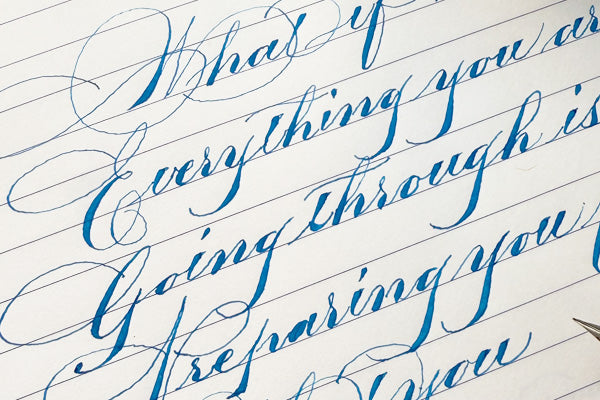 What if
Everything you ar
Going through is
Preparing you
you